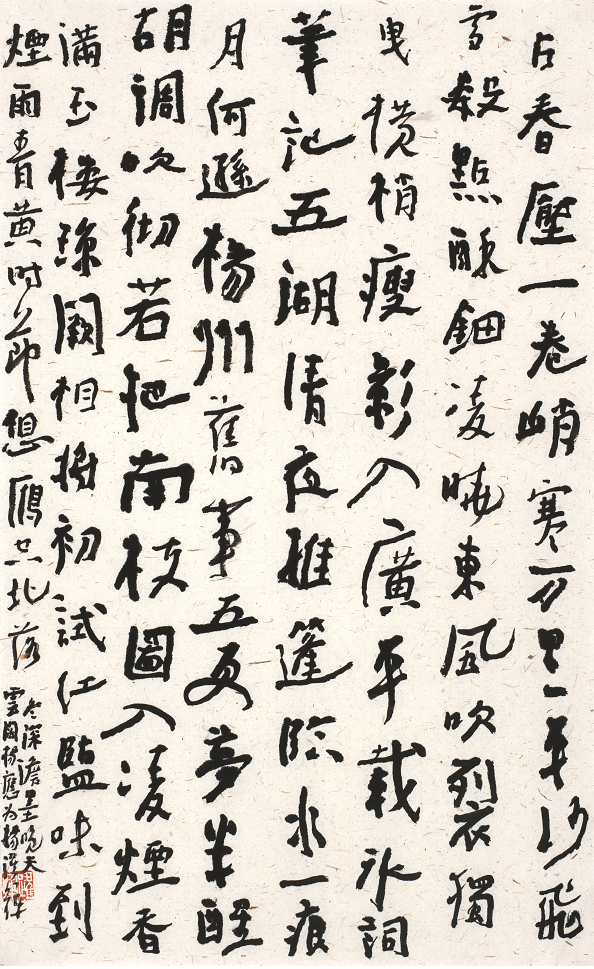 占春壓一卷峭寒万里平沙飛
雪數點酥鈿凌曉東風吹裂獨
曳橫梢瘦影入廣平載氷詞
筆記五湖清夜推篷臨水一痕
月何遜楊州舊事五更夢半醒
胡調吹彻若把南枝圖入凌煙香
滿玉樓瓊闕相將初試紅監味到
煙雨青黃時節想鴈空北落
冬深澹墨晚天
雲闊